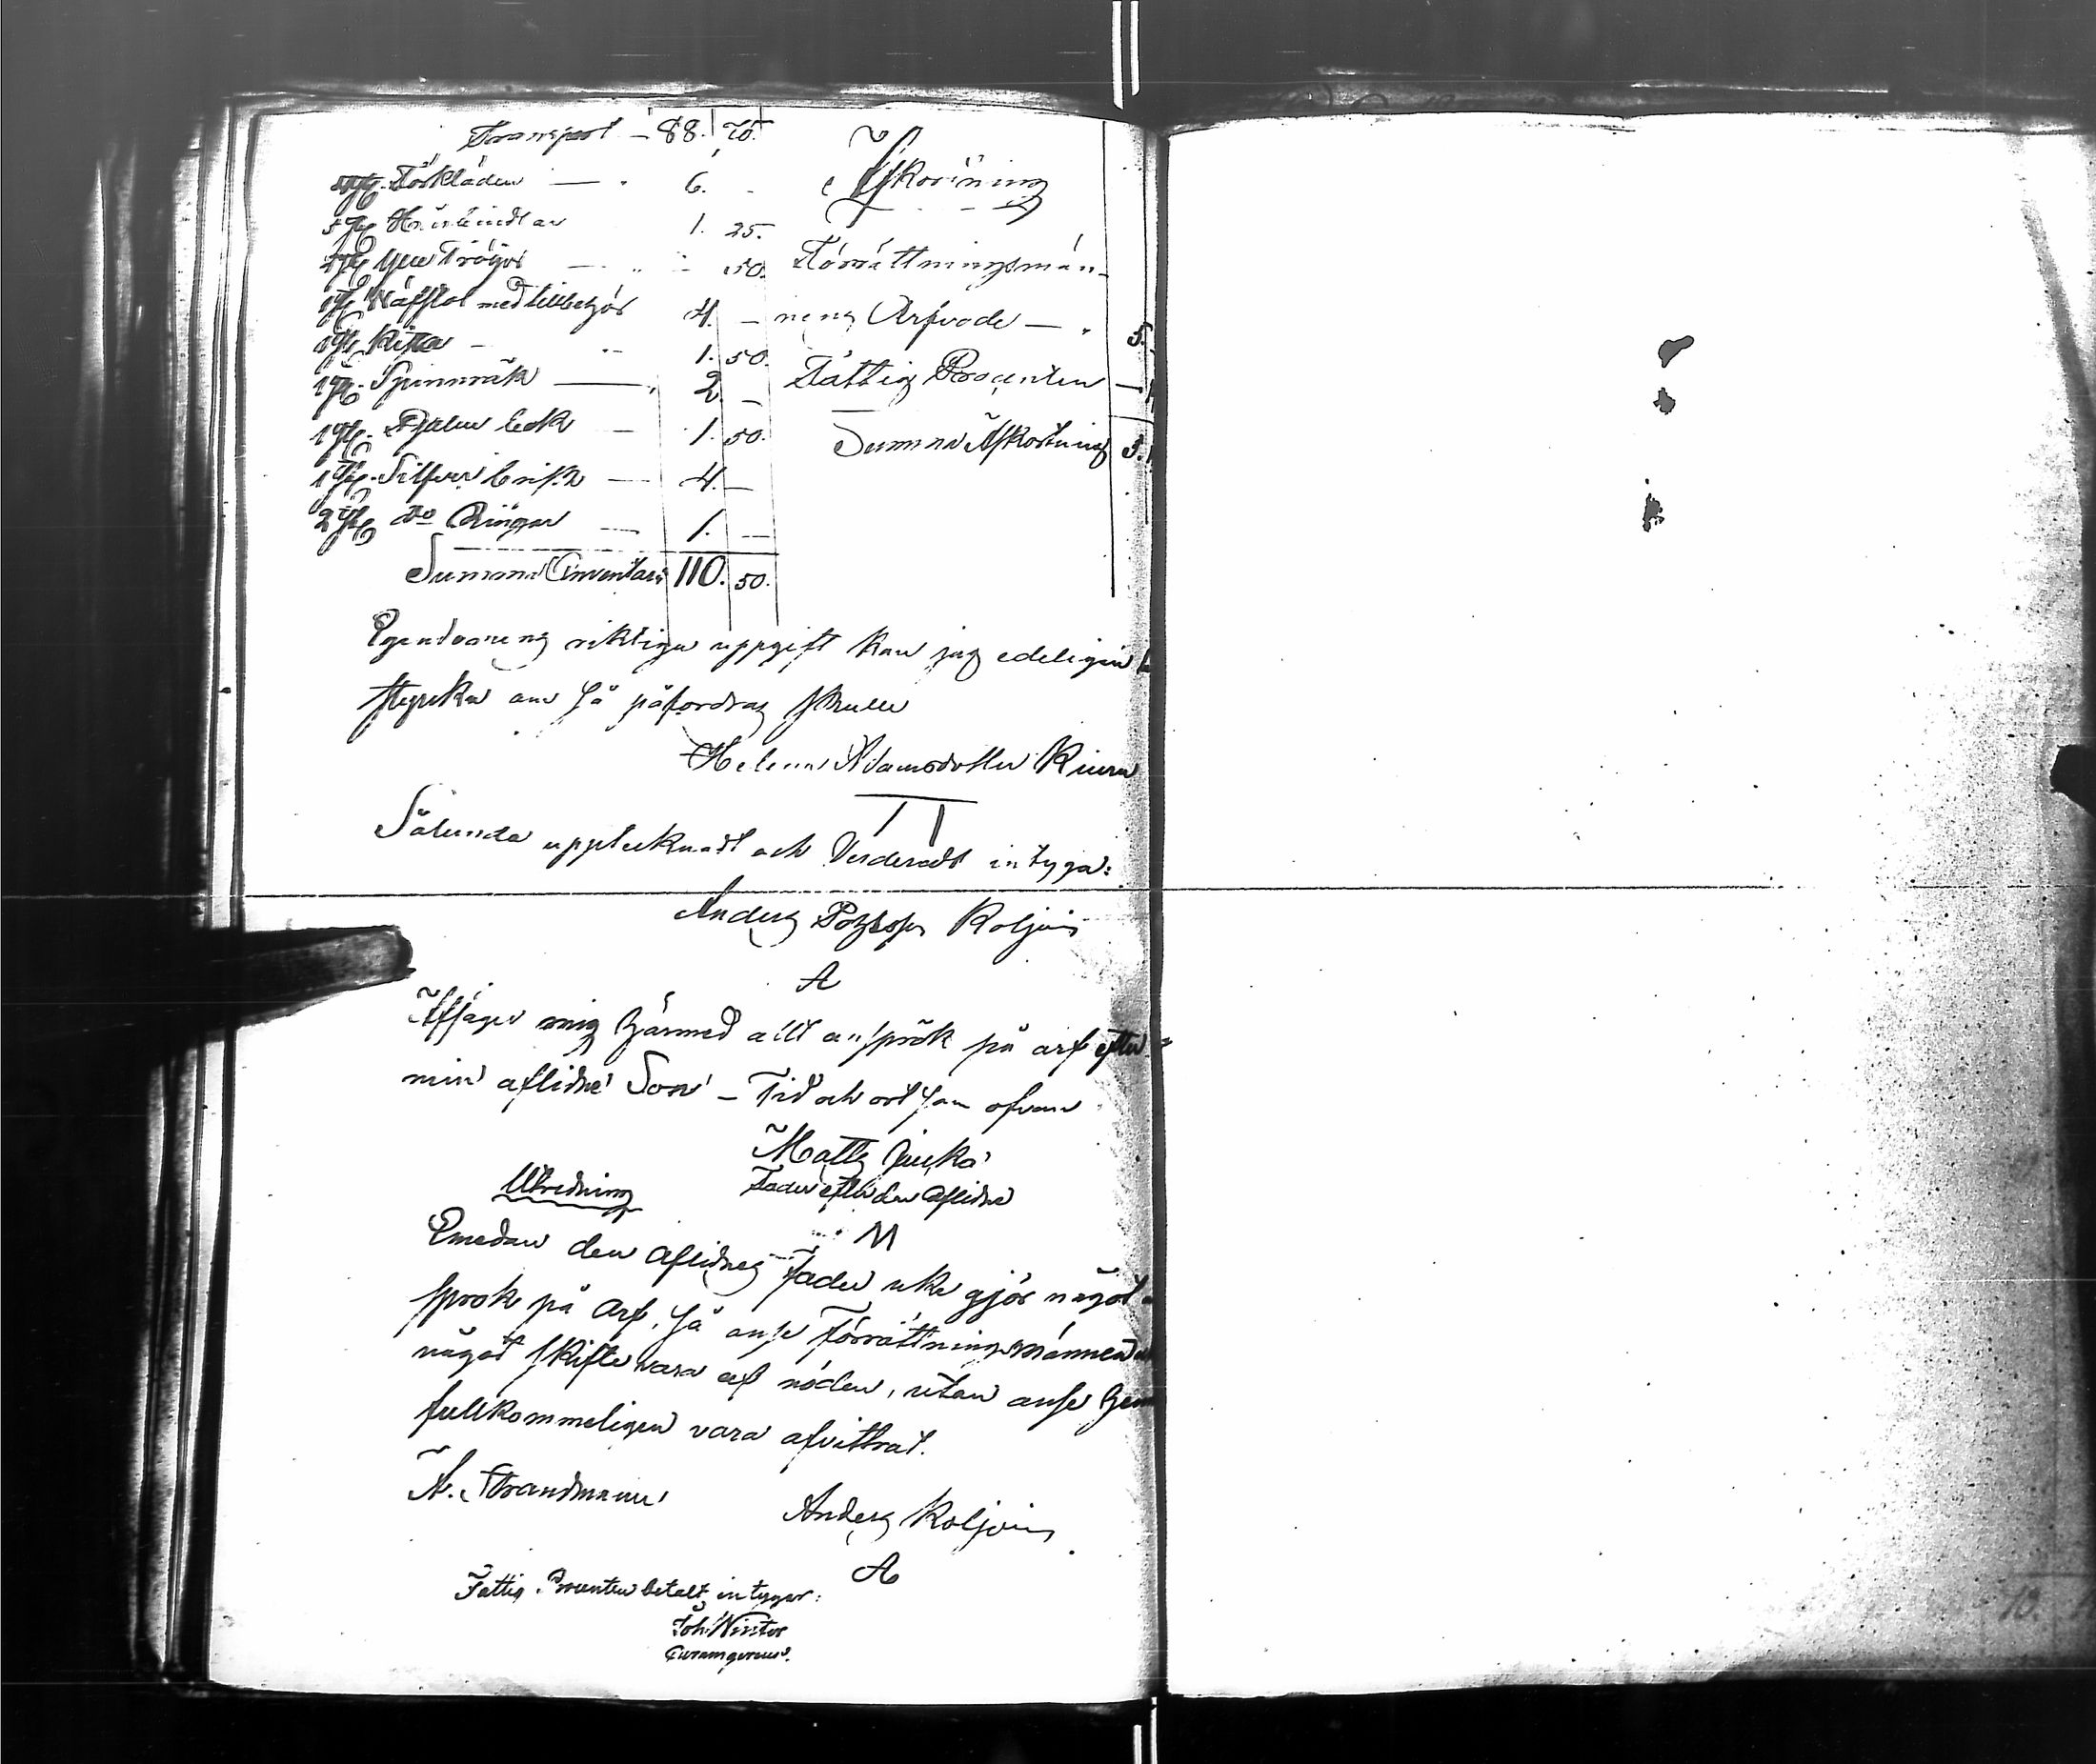 Transport — 88. 75.
5 st. Förkläden — 6. -
5 st. Hårbindlar 1. 25.
2 st. Ylle Tröjor — " 50.
1 st. Väfstol med tillbehör 4. —
1 st. Kista — 1. 50.
1 st. Spinnråk — 2. —
1 st. Psalm bok — 1. 50.
1 st. Silfver brisk — 4. —
2 st. do Ringar — 1. —
Summa Inventarii 110. 50.
Afkortning
Förrättningsmän-
nens Arfvode — . 5.
Fattig Procenten —
Summa Afkortning 5.
Egendomens riktiga uppgift kan jag edeligen
styrka om så påfordras skulle
Helena Adamsdotter Kiuru
Sålunda upptecknadt och Värderadt intygar:
Anders Koljonen
A
Afsäger mig härmed allt anspråk på arf efter
min aflidne Son — Tid och ort som ofvan
Matts
Fader efter den aflidne
M
Utredning
Emedan den aflidnes Fader icke gjör något
språk på Arf, så anse Förrättningsmännen
något skifte vara af nöden, utan anse
fullkommeligen vara afvittrat.
A. Strandmann
Anders Koljonen
A
Fattig Procenten betalt, intygar:
Joh. Winter